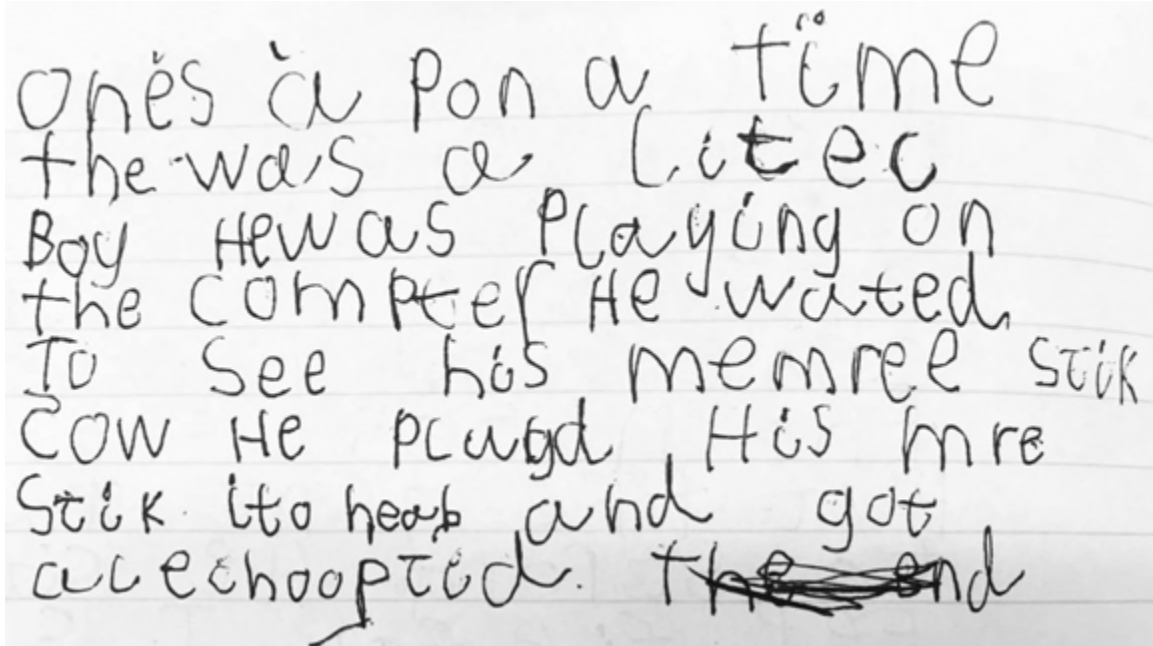 Ones a Pon a time
the was a Litel
Boy He was Playing on
the Compter He wated
To See his memree Stik
Cow He Plugd His mre
Stik ito heab and got
The end